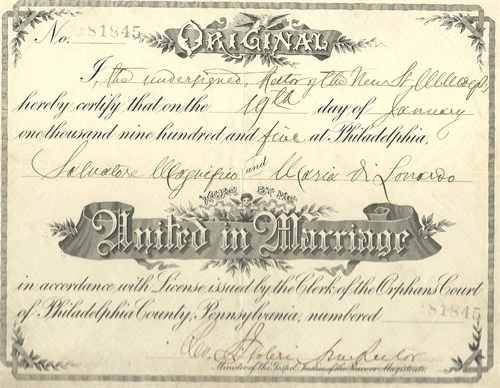 ORIGINAL
No. 181845
I, the undersigned, Rector of the New St.
hereby certify that on the 19th day of January
one thousand nine hundred and five at Philadelphia,
Salvatore Magnifico and Maria Di Lonardo
WERE BY ME
United in Marriage
in accordance with License issued by the Clerk of the Orphans Court
of Philadelphia County, Pennsylvania, numbered 181845
Rector
Minister of the Gospel, Justice of the Peace or Magistrate.